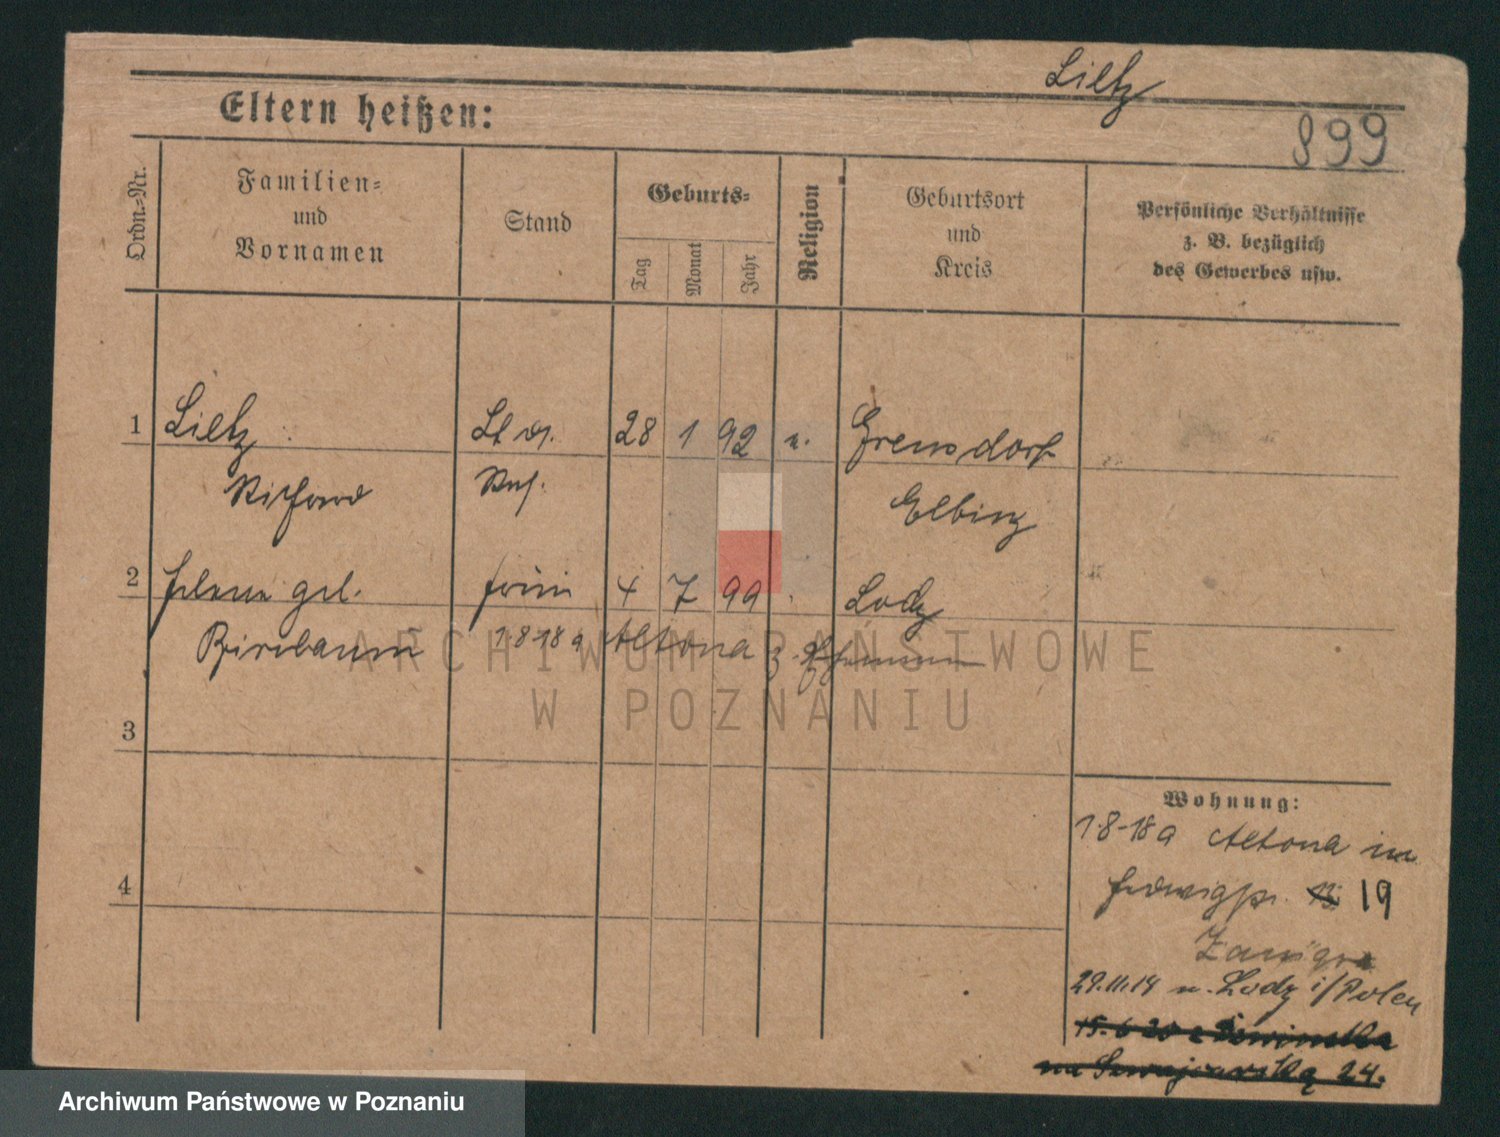 Lietz
Eltern heißen:
899
Ordn.-Nr.
Familien-
und
Vornamen
Stand
Geburts-
Tag
Monat
Jahr
Religion
Geburtsort
und
Kreis
Persönliche Verhältnisse
z. B. bezüglich
des Gewerbes usw.
1 Lietz 28 1 92
Richard Elbing
2 geb. 4 7 99 Lodz
Birnbaum 1.8.18 a Altona z.
3
4
Wohnung:
1.8.18 a Altona in
Hedwigstr. 19
29.11.19 n. Lodz i/Polen
15.6 20 z
24.
ARCHIWUM PAŃSTWOWE
W POZNANIU
Archiwum Państwowe w Poznaniu